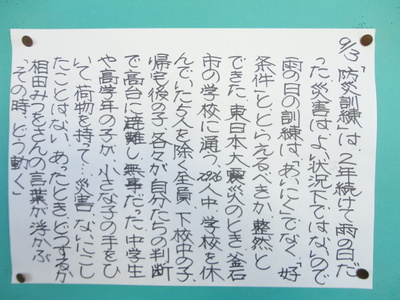 9/3「防災訓練」は、2年続けて雨の日だ
った。災害はよい状況下ではないので
雨の日の訓練は「あいにく」でなく「好
条件」ととらえるべきか。整然と
できた。東日本大震災のとき、釜石
市の学校に通う2926人中、学校を休
んでいた5人を除く全員、下校中の子、
帰宅後の子、各々が自分たちの判断
で高台に避難し無事だった。中学生
や高学年の子が、小さな子の手をひ
いて、荷物を持って…。災害、ないにこし
たことはない。あったときどうするか。
相田みつをさんの言葉が浮かぶ
「その時、どう動く」